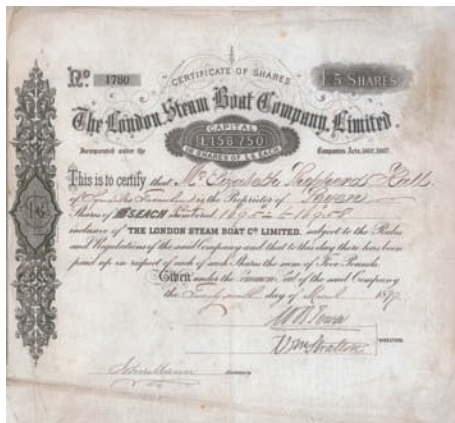 No. 1780
CERTIFICATE OF SHARES
£5 SHARES
The London Steam Boat Company, Limited.
CAPITAL
£158,750
IN SHARES OF £5 EACH
Incorporated under the Companies Acts, 1862, 1867.
This is to certify that Elizabeth Hall
of is the Proprietor of Seven
Shares of £5 EACH Numbered 16952 to 16958
inclusive of THE LONDON STEAM BOAT CO. LIMITED. subject to the Rules
and Regulations of the said Company and that to this day there has been
paid up in respect of each of such Shares the sum of Five Pounds.
Given under the Common Seal of the said Company
the day of March
DIRECTORS